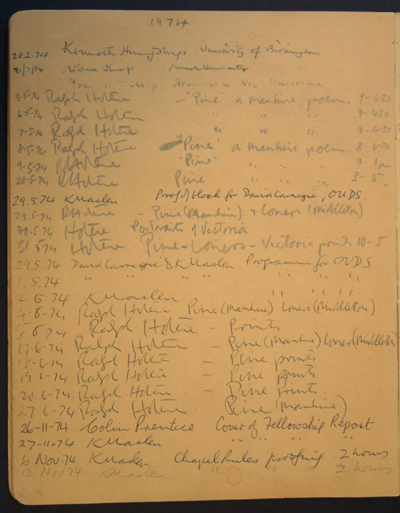 1974
28.2.74 Kenneth Humphreys University of Birmingham
5.5.74 Ralph Hotere - "Pine" a manhire poem. 9-4.30
6.5.74 Ralph Hotere " " " 9-4.30
7.5.74 Ralph Hotere " " " 9-4.30
8.5.74 Ralph Hotere "Pine" a manhire poem 8-4.30
9.5.74 R Hotere "Pine" 9 1pm
28.5.74 R Hotere Pine 3-5.
29.5.74 K Maslen Proof of block for David Carnegie, OUDS
29.5.74 R Hotere Pine (Manhire) & Loners (Middleton)
30.5.74 Hotere Portraits of Victoria
31.5.74 Hotere Pine - Loners - Victoria 10-5
29.5.74 David Carnegie & K Maslen Programme for OUDS
1.5.74 " " " " " "
2.6.74 K Maslen " " "
4.6.74 Ralph Hotere Pine (Manhire) Loners (Middleton)
5.6.74 Ralph Hotere - Prints
17.6.74 Ralph Hotere - Pine (Manhire) Loners (Middleton)
18-6-74 Ralph Hotere - Pine prints
19.6.74 Ralph Hotere - Pine prints
20.6.74 Ralph Hotere - Pine prints.
27 6-74 Ralph Hotere. Pine (Manhire)
26-11-74 Colin Prentice Cover of Fellowship Report
27-11-74 K Maslen " " " "
6 Nov. 74 K Maslen Chapel Rules proofing 2 hours
12 Nov 74 K Maslen " " " 2 hours